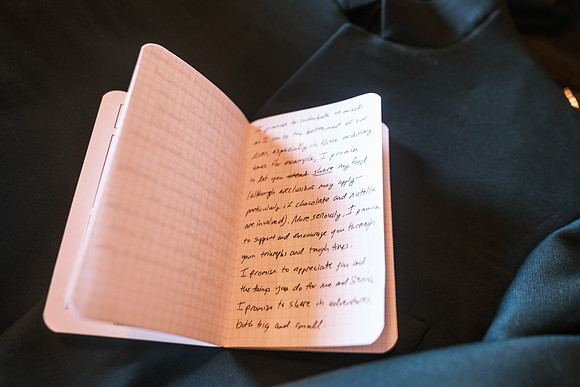 I promise to contribute as much
as I can to the betterment of our
lives, especially in those ordinary
times. For example, I promise
to let you steal share my food
(although exclusions may apply –
particularly if chocolate and Nutella
are involved). More seriously, I promise
to support and encourage you through
your triumphs and tough times.
I promise to appreciate you and
the things you do for me and
I promise to share in adventures,
both big and small.